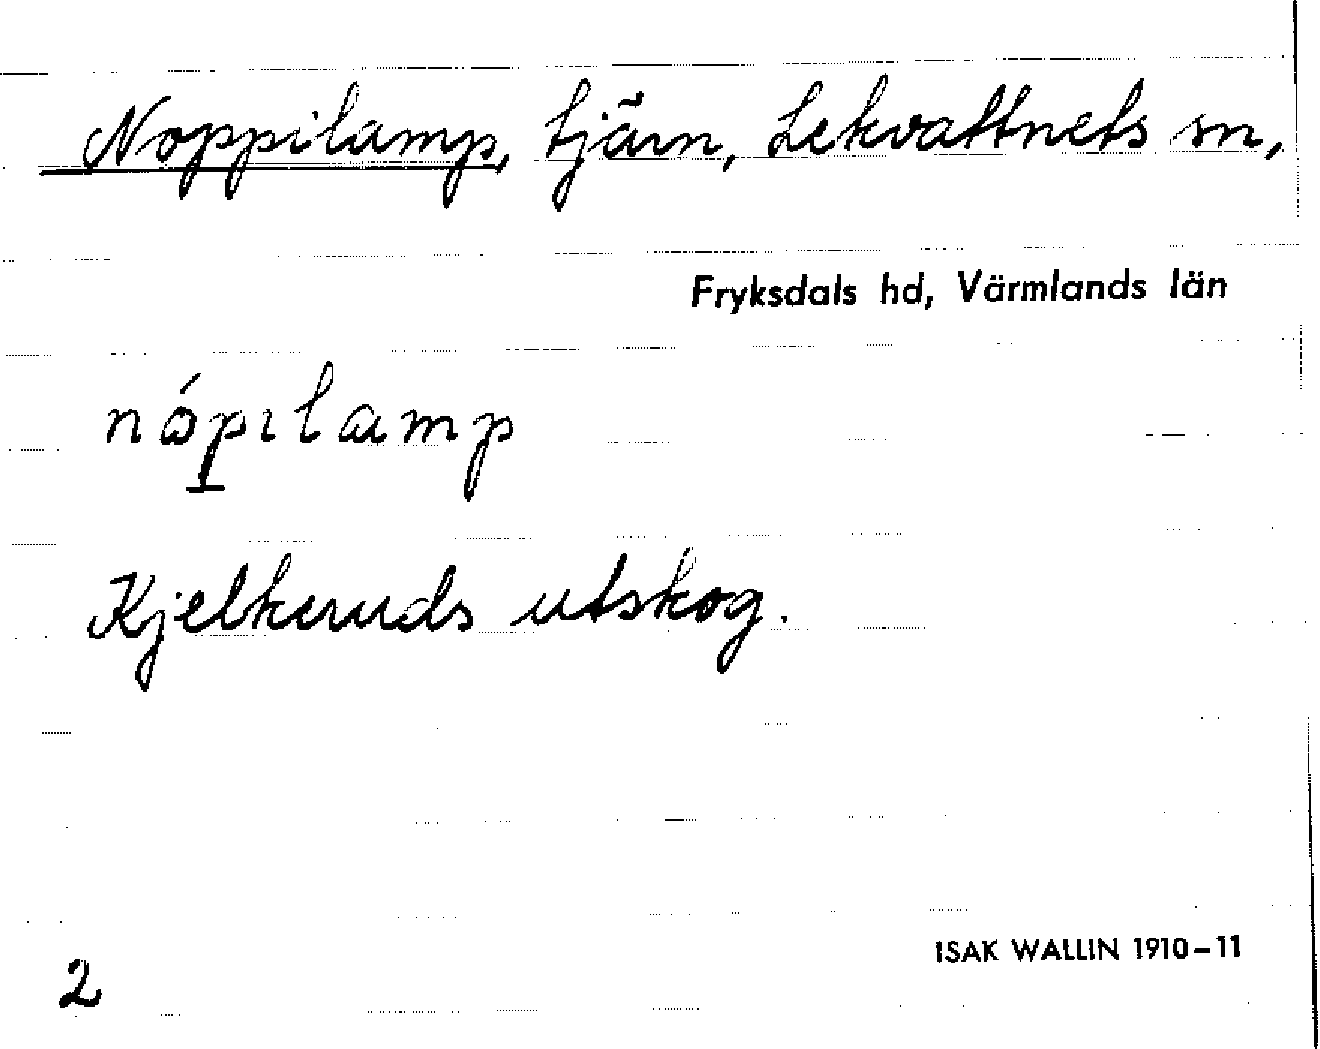 Noppilamp, tjärn, Lekvattnets sn,
Fryksdals hd, Värmlands län
nópılamp
Kjelkeruds utskog.
ISAK WALLIN 1910-11
2